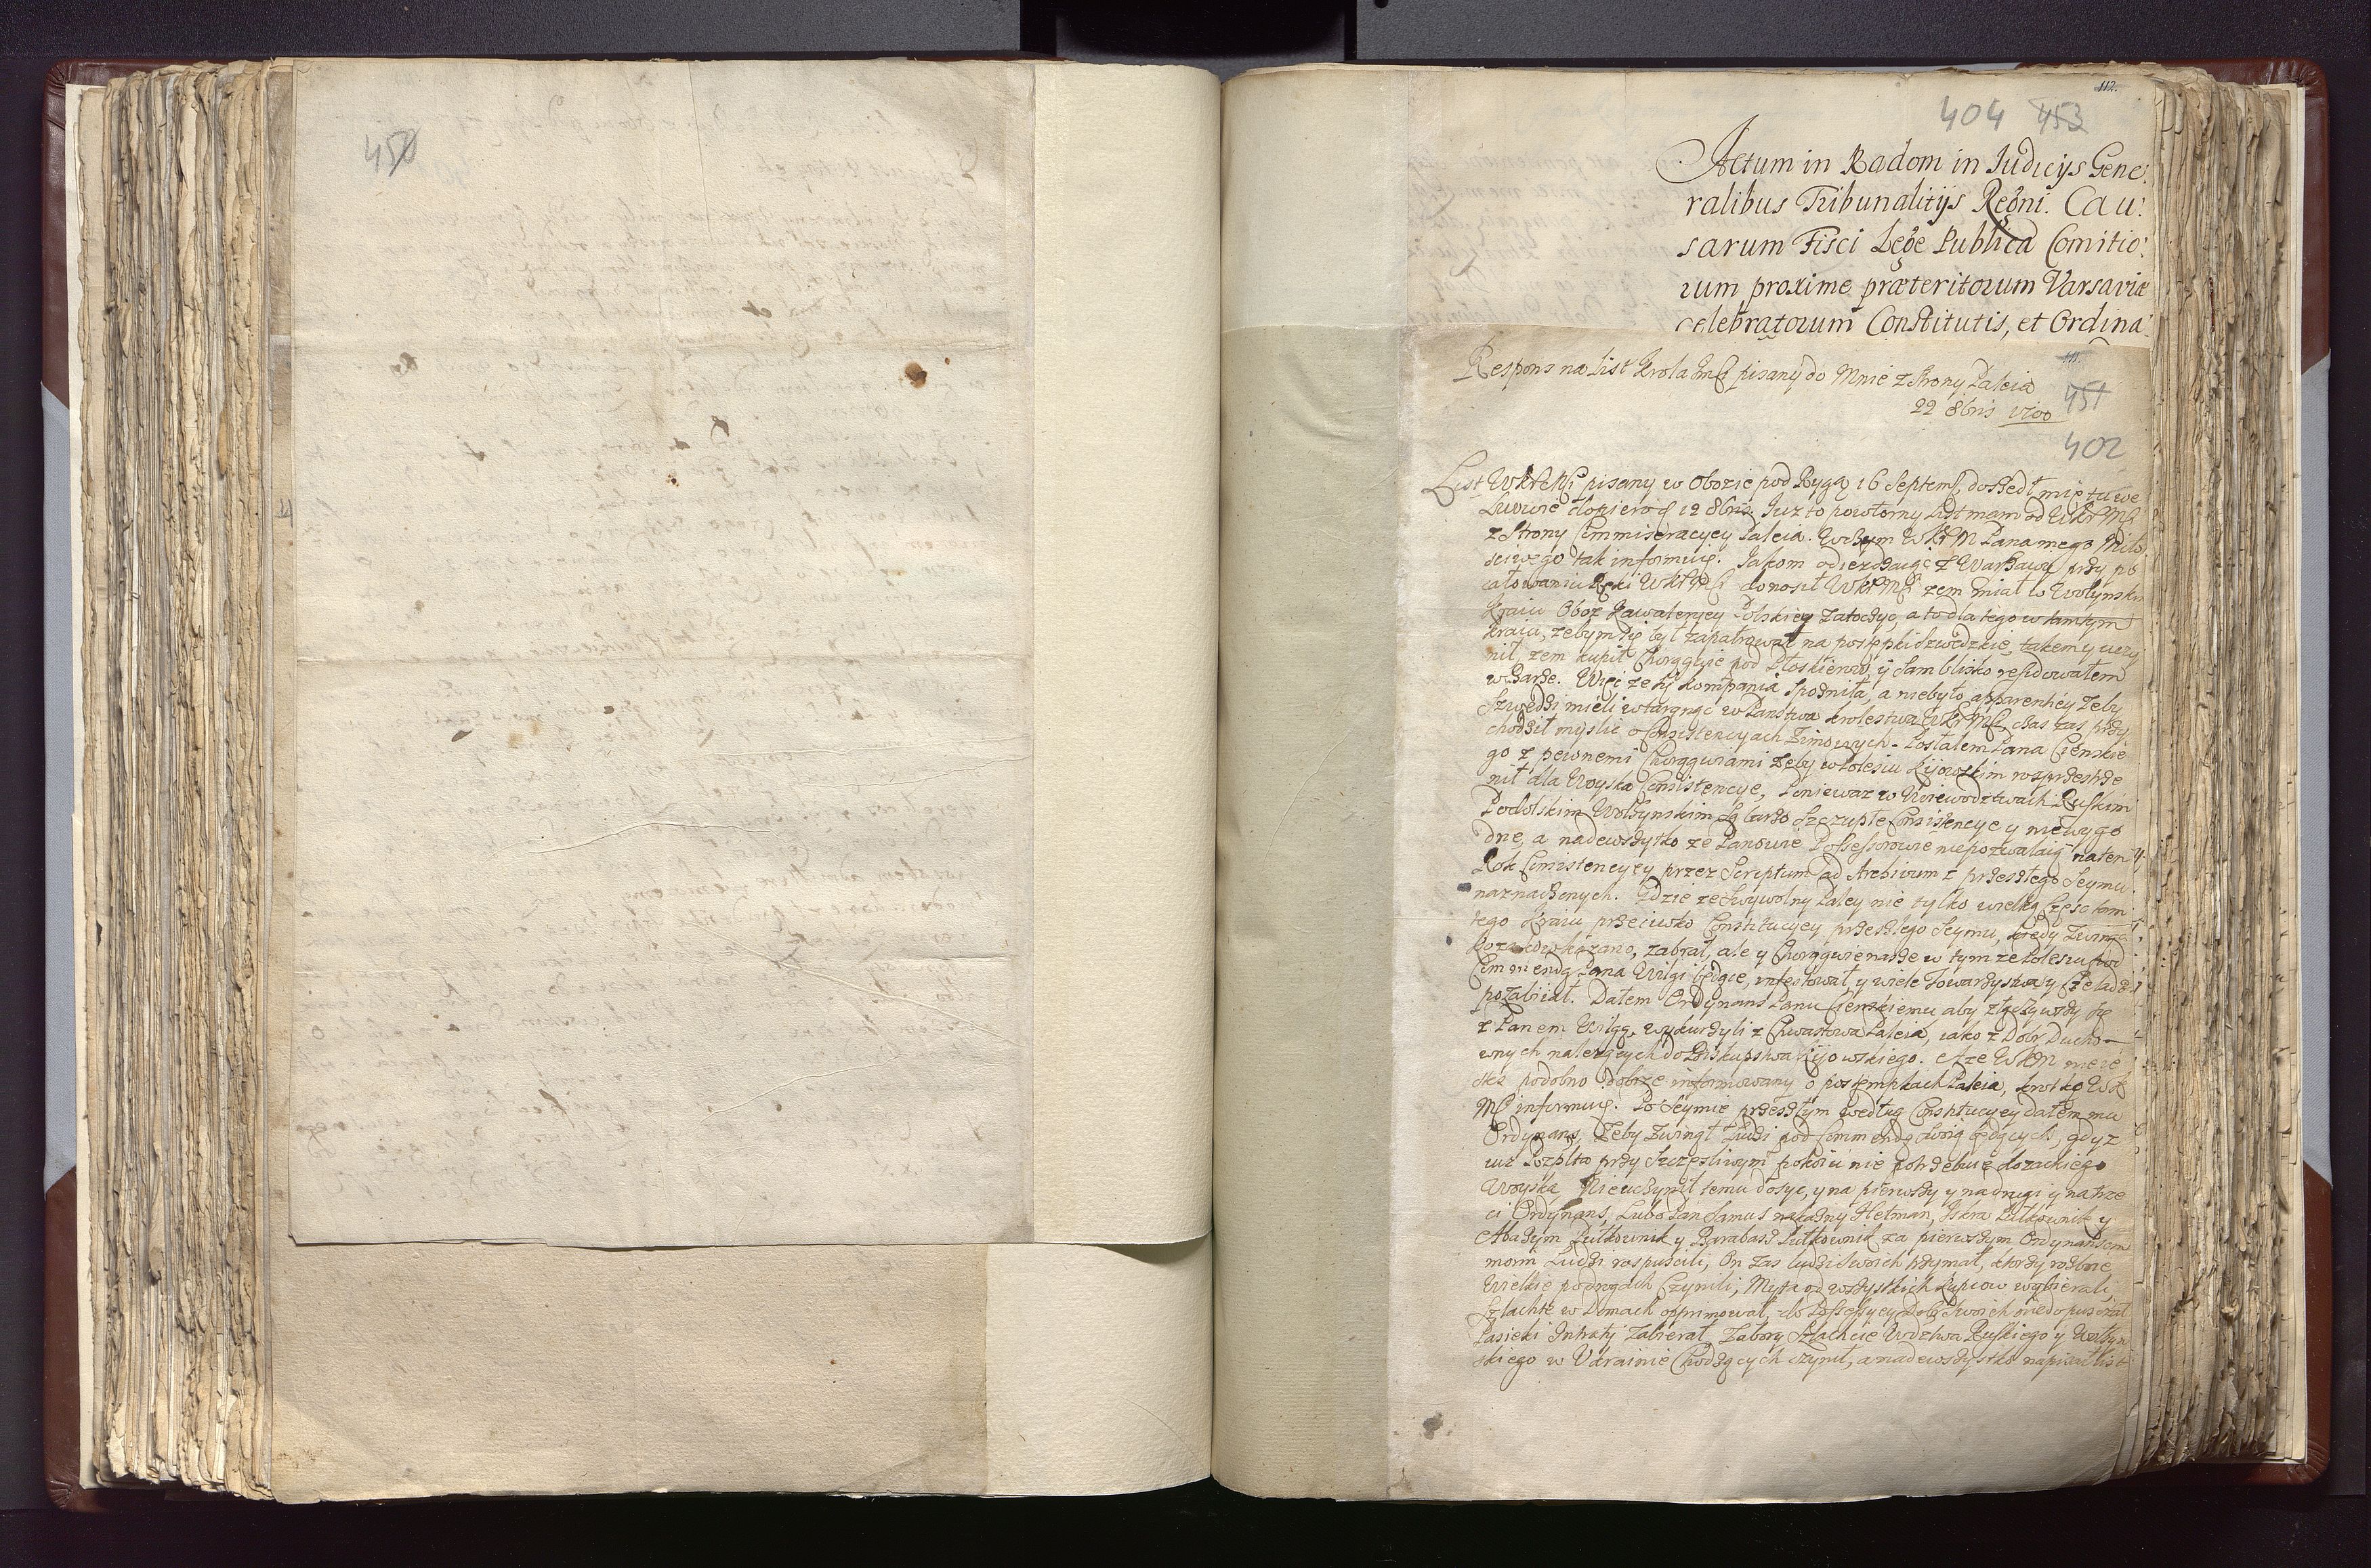 450
112.
404 453
Actum in Radom in Iudicÿs Gene:
ralibus Tribunalitÿs Regni. Cau:
sarum Fisci Lege Publica Comitio:
rum proxime præteritorum Varsaviæ
celebratorum Constitutis, et Ordina:
111.
Respons na List Krola Jmści pisany do Mnie z Strony Paleia
22 8bris 1700
451
402
List WKrMści pisany w Obozie pod Rygą 16 Septem. doszedł mię tu we
Lwowie dopiero 12 8bris. Iuz to powtorny List mam od WKrMści
z Strony Commiseracyey Paleia. W czym WKrM Pana mego Miło
sciwego tak informuię. Iakom odiezdzaiąc z Warszawy przy po
całowaniu Ręki WKrMści donosił WKrMści zem miał w Wołynskim
Kraiu Oboz Kawaleryey Polskiey zatoczyc, a to dla tego w tamtym
kraiu, zebym się był zapatrował na postępki Szwedzkie, takem y uczy
nił, zem kupił Chorągwie pod Płoskirowem y sam blisko residowałem
w Barze. Więc ze się kompania spozniła, a niebyło apparentiey zeby
Szwedzi mieli wtargnąc w Panstwa Krolestwa WKrMści, czas zas przy
chodził myslic o Consistencyach Zimowych. Posłałem Pana Cienskie
go z pewnemi Chorągwiami zeby w Polesiu Kijowskim rosprzestrze
nił dla Woyska Consistencye, Poniewaz w Woiewodztwach Ruskim
Podolskim Wołynskim są bardzo szczupłe Consistencye y niewygo
dne, a nadewszytko ze Panowie Possessorowie niepozwalaią na ten
Rok Consistencyey przez Scriptum ad Archivum z przeszłego Seymu
naznaczonych. Gdzie ze Swywolny Paley nie tylko wielką częsc tam
tego Kraiu przeciwko Constitucyey przeszłego Seymu, kiedy zwinąc
Kozakow kazano, zabrał, ale y Chorągwie nasze w tym ze Polesiu pod
Commendą Pana Wilgi będące, infestował, y wiele Towarzystwa y Czeladzi
pozabiiał. Dałem Ordynans Panu Cienskiemu aby złączywszy się
z Panem Wilgą, wykurzyli z Chwastowa Paleia, iako z Dobr Ducho
wnych nalezących do Biskupstwa Kijowskiego. A ze WKrM nie ie
stes podobno dobrze informowany o postempkach Paleia, krotko WKr
Mść informuię. Po Seymie przeszłym według Constitucyey dałem mu
Ordynans, zeby zwinął Ludzi pod Commendą swoią będących, gdyz
iuz Rzplta przy szczęsliwym pokoiu nie potrzebuie Kozackiego
Woyska. Nieuczynił temu dosyc, y na pierwszy y na drugi y na trze
ci Ordynans, Lubo Pan Samus nakazny Hetman, Iskra Pułkownik y
Abazym Pułkownik y Barabasz Pułkownik za pierwszym Ordynansem
moim Ludzi rospuscili, On zas ludzi swoich trzymał, ktorzy rozboie
Wielkie po drogach czynili, Myta od wszystkich kupcow wybierali,
Szlachtę w Domach opprimował, do Possessyey Dobr swoich niedopuszczał
Pasieki Intraty zabierał, Zabory Szlachcie Wdztwa Ruskiego y Wołyn
skiego w Ukrainie chodzących czynił, a nadewszystko napisał list